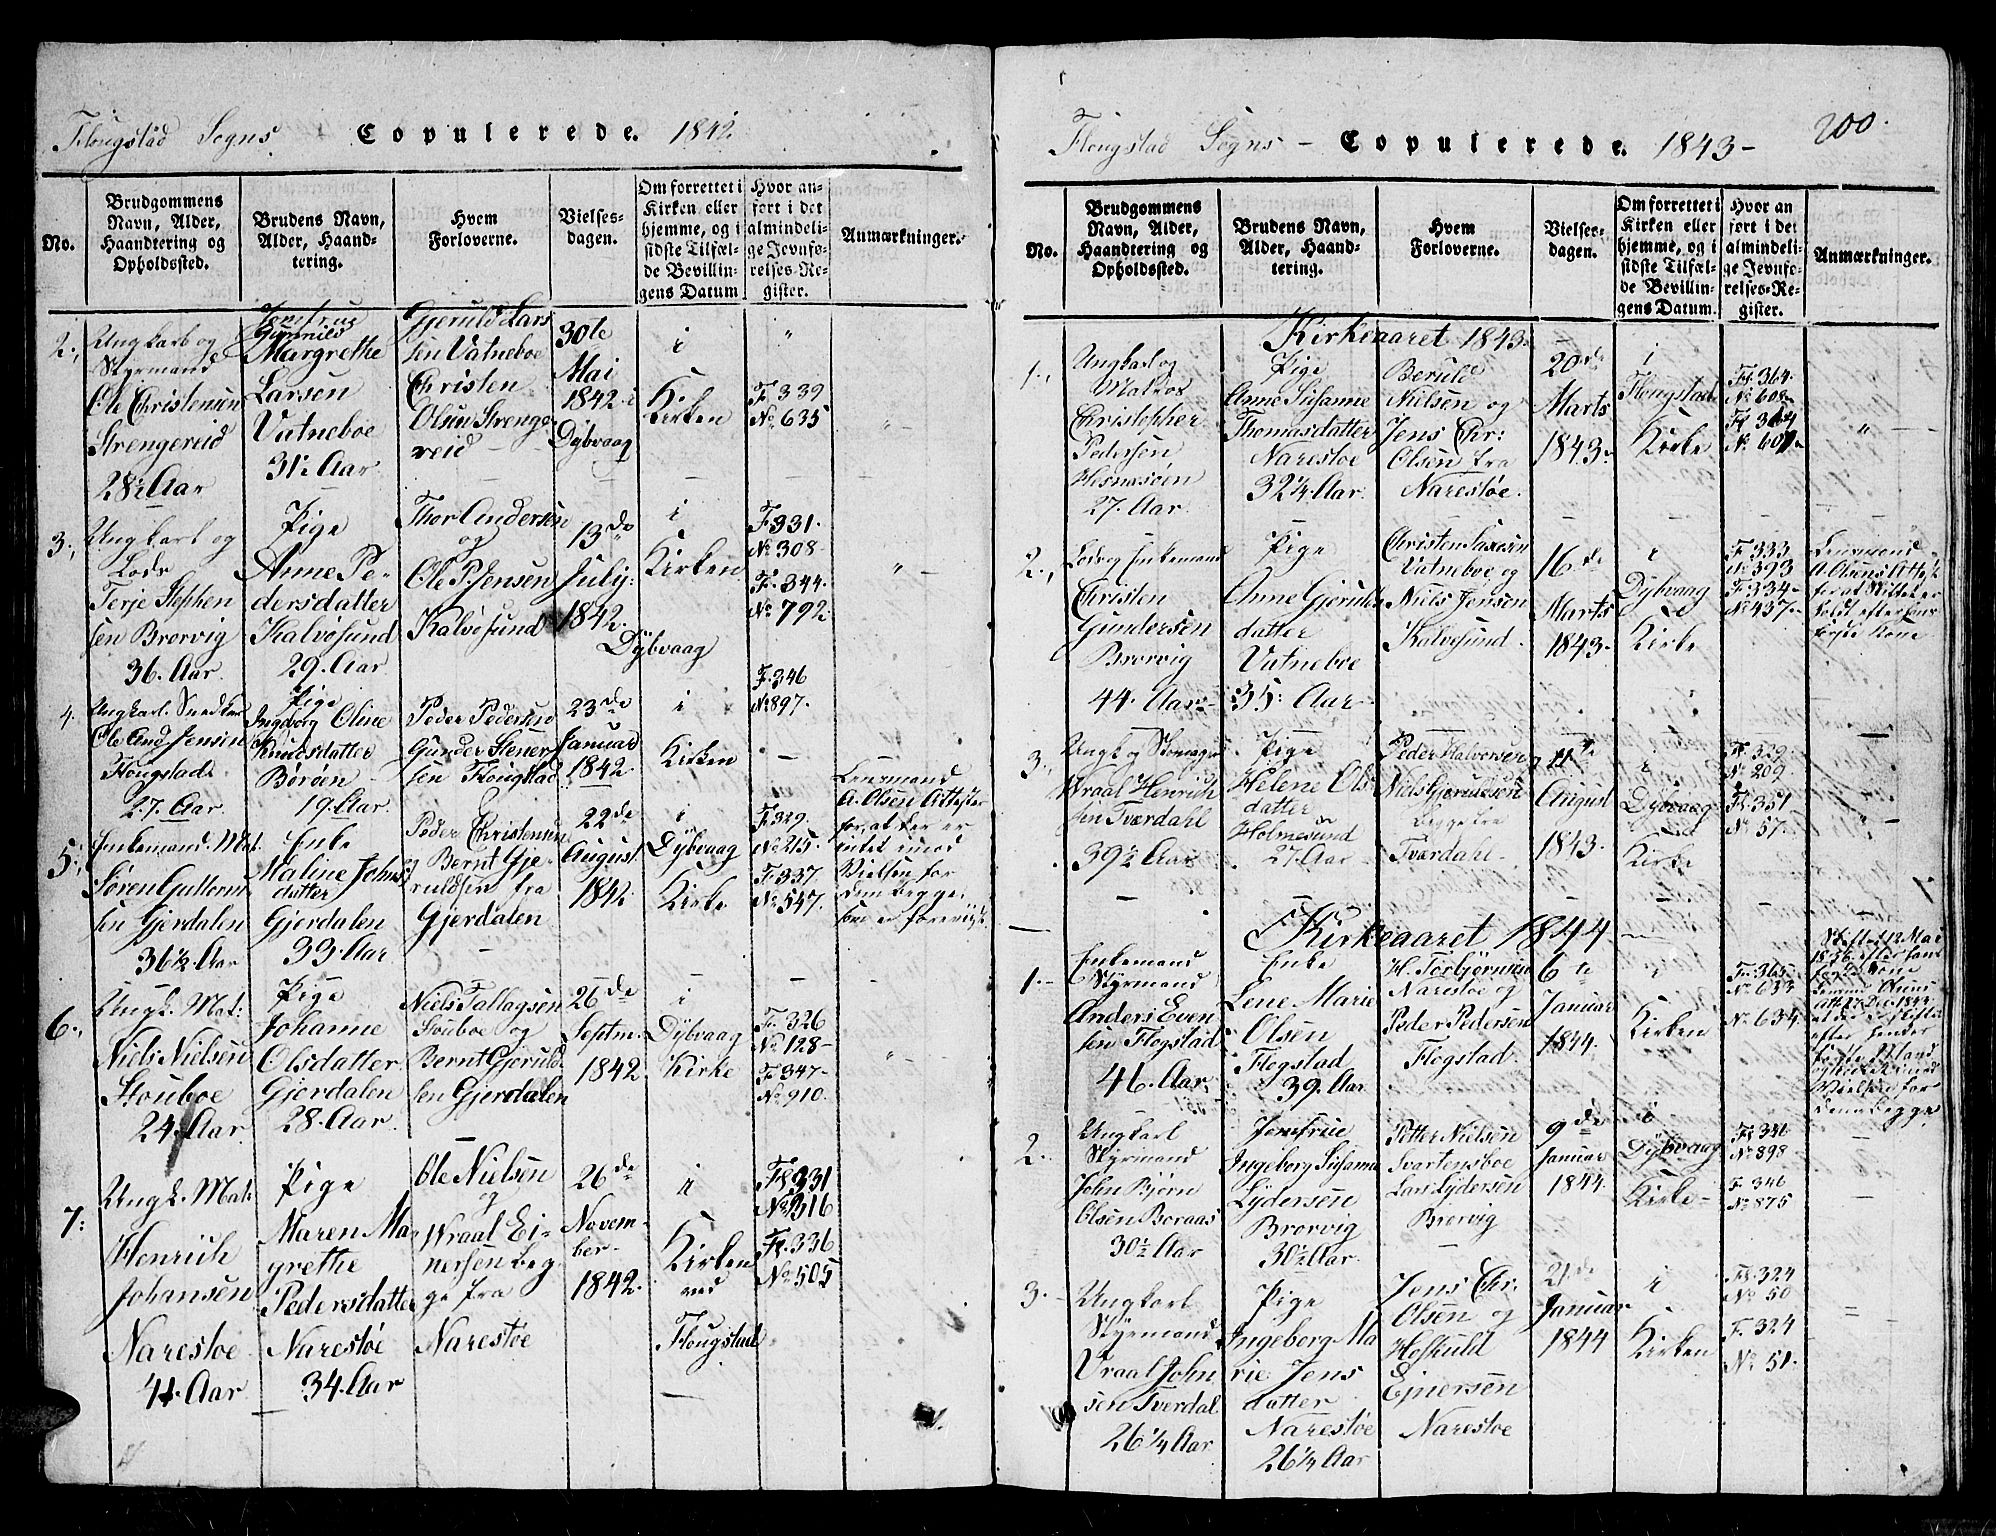 Flougstad Sogns Copulerede. 1842.
No.
Brudgommens Navn, Alder, Haandtering og Opholdssted.
Brudens Navn, Alder, Haandtering.
Hvem Forloverne.
Vielsesdagen.
Om forrettet i Kirken eller hjemme, og i sidste Tilfælde Bevillingens Datum
Hvor anført i det almindelige Jevnførelses-Register.
Anmærkninger.
2.,
Ungkarl og
Styrmand
Ole Christensen
Strengereid
28½ Aar
Jomfrue
Gunnild
Margrethe
Larsen
Vatneboe
31½ Aar
Gjeruld Lars
sen Vatneboe
Christen
Olsen Strenge
reid
30te
Mai
1842
Dybvaag
i
Kirken
F. 339
No 635
3.,
Ungkarl og
Lods
Terje Stephen
sen Brorvig
36. Aar
Pige
Anne Pe-
dersdatter
Kalvøsund
29. Aar
Thor Andersen
og
Ole P. Jensen
Kalvøsund
13de
July:
1842.
Dybvaag
i
Kirken
F. 331.
No 308.
F. 344.
No 792.
4.
Ungkarl. Snedker
Ole And. Jensen
Flougstad.
27. Aar
Pige
Ingeborg Oline
Knudsdatter
Børøen
19. Aar
Peder Pedersen
Gunder Stener
sen Flougstad
23de
Januar
1842
i
Kirken
F. 346
No 897.
5.,
Enkemand. Mat.
Søren Guttorm
sen Gjerdalen
36½ Aar
Enke
Maline Johns
datter
Gjerdalen
33. Aar
Peder Christensen
og Bernt Gje-
ruldsen fra
Gjerdalen
22de
August
1842
i
Dybvaag
Kirke
F. 329.
No 215.
F. 337.
No 547.
Lensmand
A. Olsen Attester
for, at der er
intet imod
Vielsen for
dem begge,
som er forevist
6.,
Ungk. Mat:
Niels Nielsen
Stouboe
24. Aar
Pige
Johanne
Olsdatter
Gjerdalen
28. Aar.
Niels Tallagsen
Stouboe og
Bernt Gjeruld
sen Gjerdalen
26de
Septm.
1842
i
Dybvaag
Kirke
F. 326
No 128
F. 347
No 910.
7:
Ungk. Mat:
Henrich
Johansen
Narestoe
41. Aar
Pige
Maren Ma
grethe
Pedersdatter
Narestöe
34. Aar
Ole Nielsen
og
Wraal Ei-
nersen beg
ge fra
Narestöe
26de
Novem-
ber
1842.
i
Kirken
ved
Flougstad
Fl. 331
No 316
Fl. 336
No 505
Flougstad Sogns - Copulerede. 1843 -
200.
No.
Brudgommens Navn, Alder, Haandtering og Opholdssted.
Brudens Navn, Alder, Haandtering.
Hvem Forloverne.
Vielsesdagen.
Om forrettet i Kirken eller hjemme, og i sidste Tilfælde Bevillingens Datum.
Hvor anført i det almindelige Jevnførelses-Register.
Anmærkninger.
Kirkeaaret 1843.
1.,
Ungkarl og
Matros
Christopher
Pedersen
Hesnesøen
27. Aar.
Pige
Anne Susanne
Thomasdatter
Narestoe
32¼ Aar.
Beruld
Nielsen og
Jens Chr:
Olsen fra
Narestöe.
20de
Marts
1843.
i
Flougstad
Kirke
Fl. 364.
No 608
Fl. 364
No 607
2.,
Lods og Enkemand
Christen
Gundersen
Brorvig
44. Aar
Pige
Anne Gjeruls
datter
Vatneboe
35: Aar
Christen Saxesen
Vatneboe, og
Niels Jensen
Kalvesund.
16de
Marts
1843.
i
Dybvaag
Kirke
F. 333
No 393
F. 334
No 437.
Lensmand
A. Olsens Attest
for at Skifte er
holdt efter hans
første Kone
3.,
Ungk. og
Wraal Henrich
sen Tverdahl
39½ Aar
Pige
Helene Ols
datter
Holmesund
27. Aar
Peder Halvorsen og
Niels Gjeruldsen
begge fra
Tverdahl
11te
August
1843.
i
Dybvaag
Kirke
Fl. 329.
No 209.
Fl. 351
No 57.
Kirkeaaret 1844
1.
Enkemand
Styrmand
Anders Even
sen Flogstad
46. Aar
Enke
Lene Marie
Olsen
Flogstad
39. Aar
H. Torbjørnsen
Narestoe og
Peder Pedersen
Flogstad.
6te
Januar
1844.
i
Kirken
F. 365
No 633
No 634.
Skiftet 12 Mai
1836 efter hans
første Kone
Lensmand Olsens
Att. 27. Dec. 1843
at der er Skiftet
efter hendes
første Mand
og intet imod
Vielsen for
dem begge
2.
Ungkarl
Styrmand
John Bjørn
Olsen Boraas
30½ Aar
Jomfrue
Ingeborg Susanna
Lydersen
Brorvig
30½ Aar.
Petter Nielsen
Svartensboe
Lars Lydersen
Brorvig
9de
Januar
1844
i
Dybvaag
Kirke
Fl. 346
No 898.
F. 346
No 875
3.
Ungkarl
Styrmand
Vraal John
sen Tverdal
26¼ Aar
Pige
Ingeborg Ma
rie Jens
datter
Narestöe
26¼ Aar
Jens Chr.
Olsen og
Hoskuld
Ejnersen
Narestoe
21de
Januar
1844
i
Kirken
Fl. 324
No 50
F. 324
No 51.